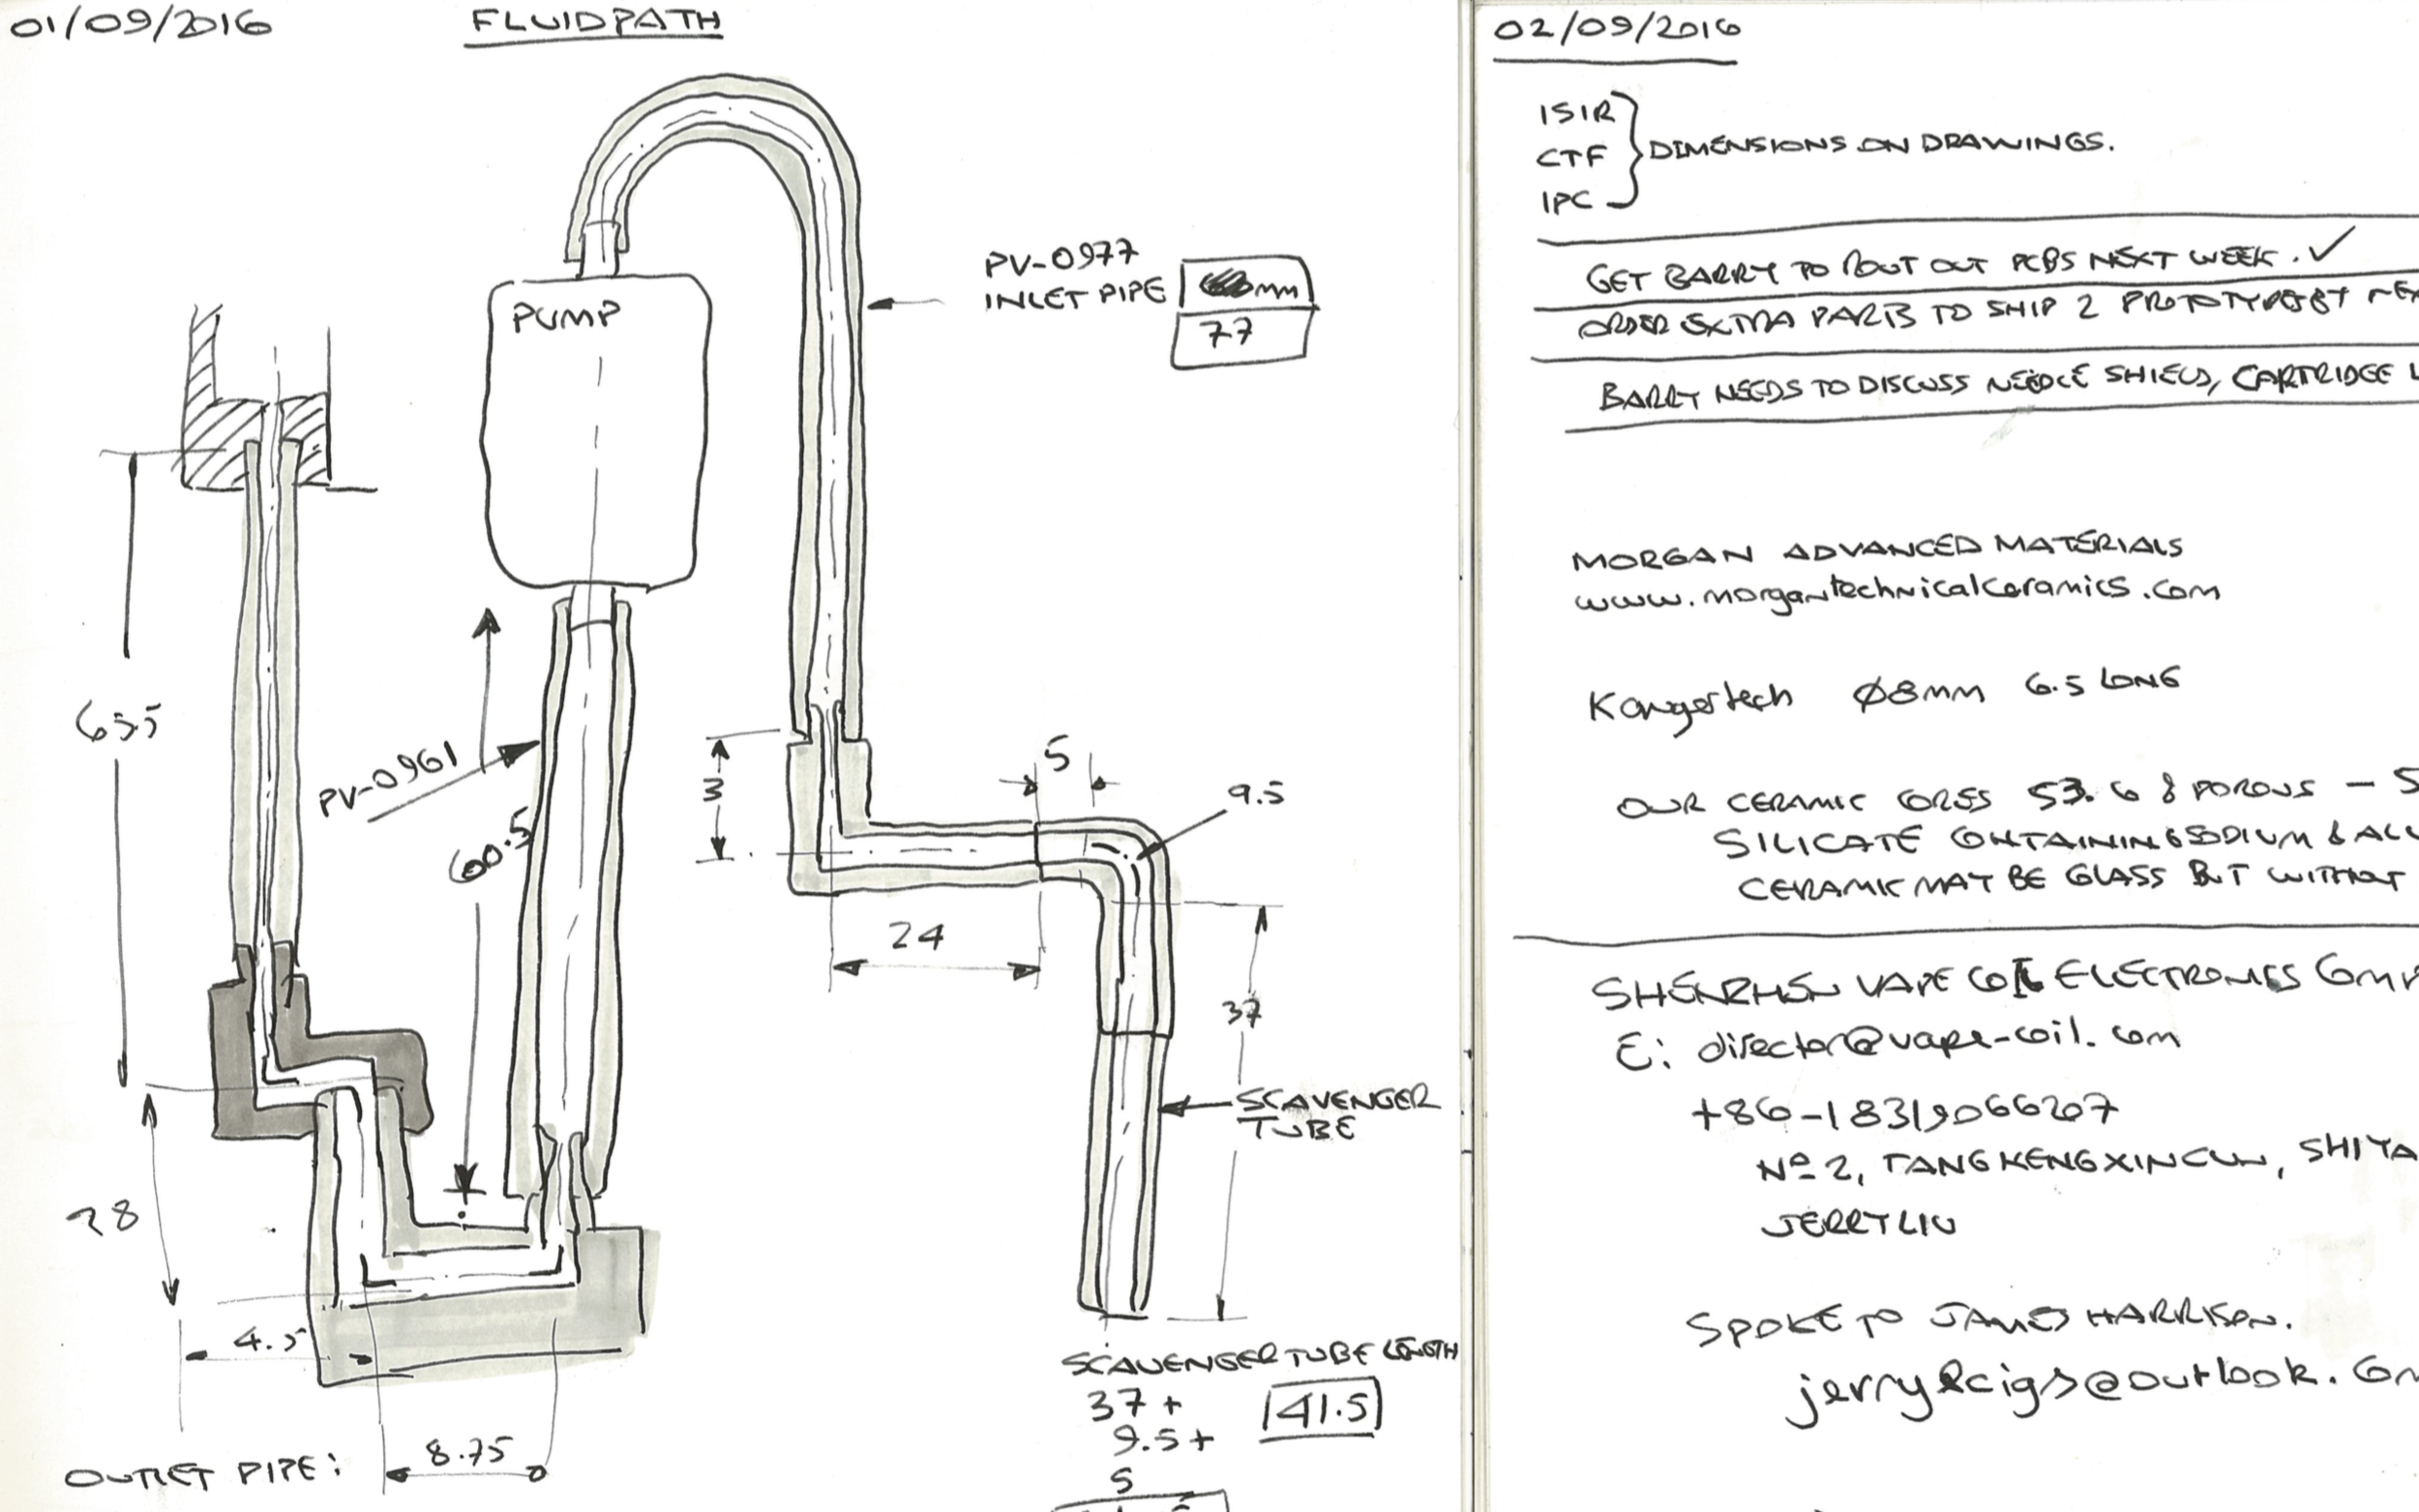 01/09/2016
FLUIDPATH
PUMP
PV-0977
INLET PIPE
mm
77
63.5
PV-0961
60.5
3
5
9.5
24
37
SCAVENGER
TUBE
28
4.5
8.75
OUTLET PIPE:
SCAVENGER TUBE LENGTH
37 +
41.5
9.5 +
5
02/09/2016
ISIR
CTF
IPC
DIMENSIONS ON DRAWINGS.
GET BARRY TO ROUT OUT PCBS NEXT WEEK. ✓
ORDER EXTRA PARTS TO SHIP 2 PROTOTYPES
BARRY NEEDS TO DISCUSS NEEDLE SHIELD, CARTRIDGE
MORGAN ADVANCED MATERIALS
www.morgantechnicalceramics.com
Kangertech Ø8mm 6.5 LONG
OUR CERAMIC CORES 53.6 & POROUS –
SILICATE CONTAINING SODIUM &
CERAMIC MAY BE GLASS BUT WITHOUT
SHENZHEN VAPE COIL ELECTRONICS
E: director@vape-coil.com
+86-18319066207
Nº 2, TANGKENGXINCUN,
JERRY LIU
SPOKE TO JAMES HARRISON.